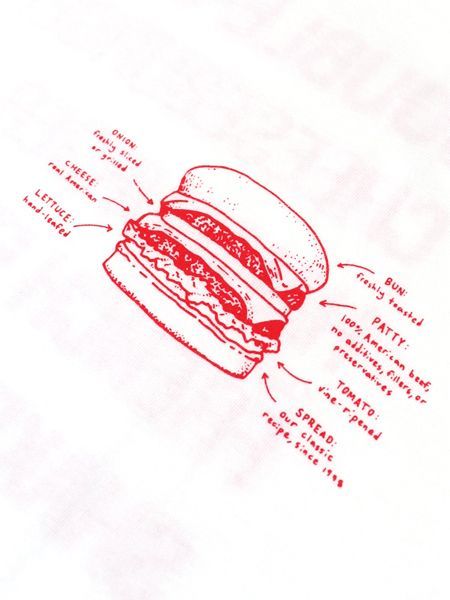 ONION:
freshly sliced
or grilled
CHEESE:
real American
LETTUCE:
hand-leafed
BUN:
freshly toasted
PATTY:
100% American beef,
no additives, fillers, or
preservatives
TOMATO:
vine-ripened
SPREAD:
our classic
recipe, since 1948